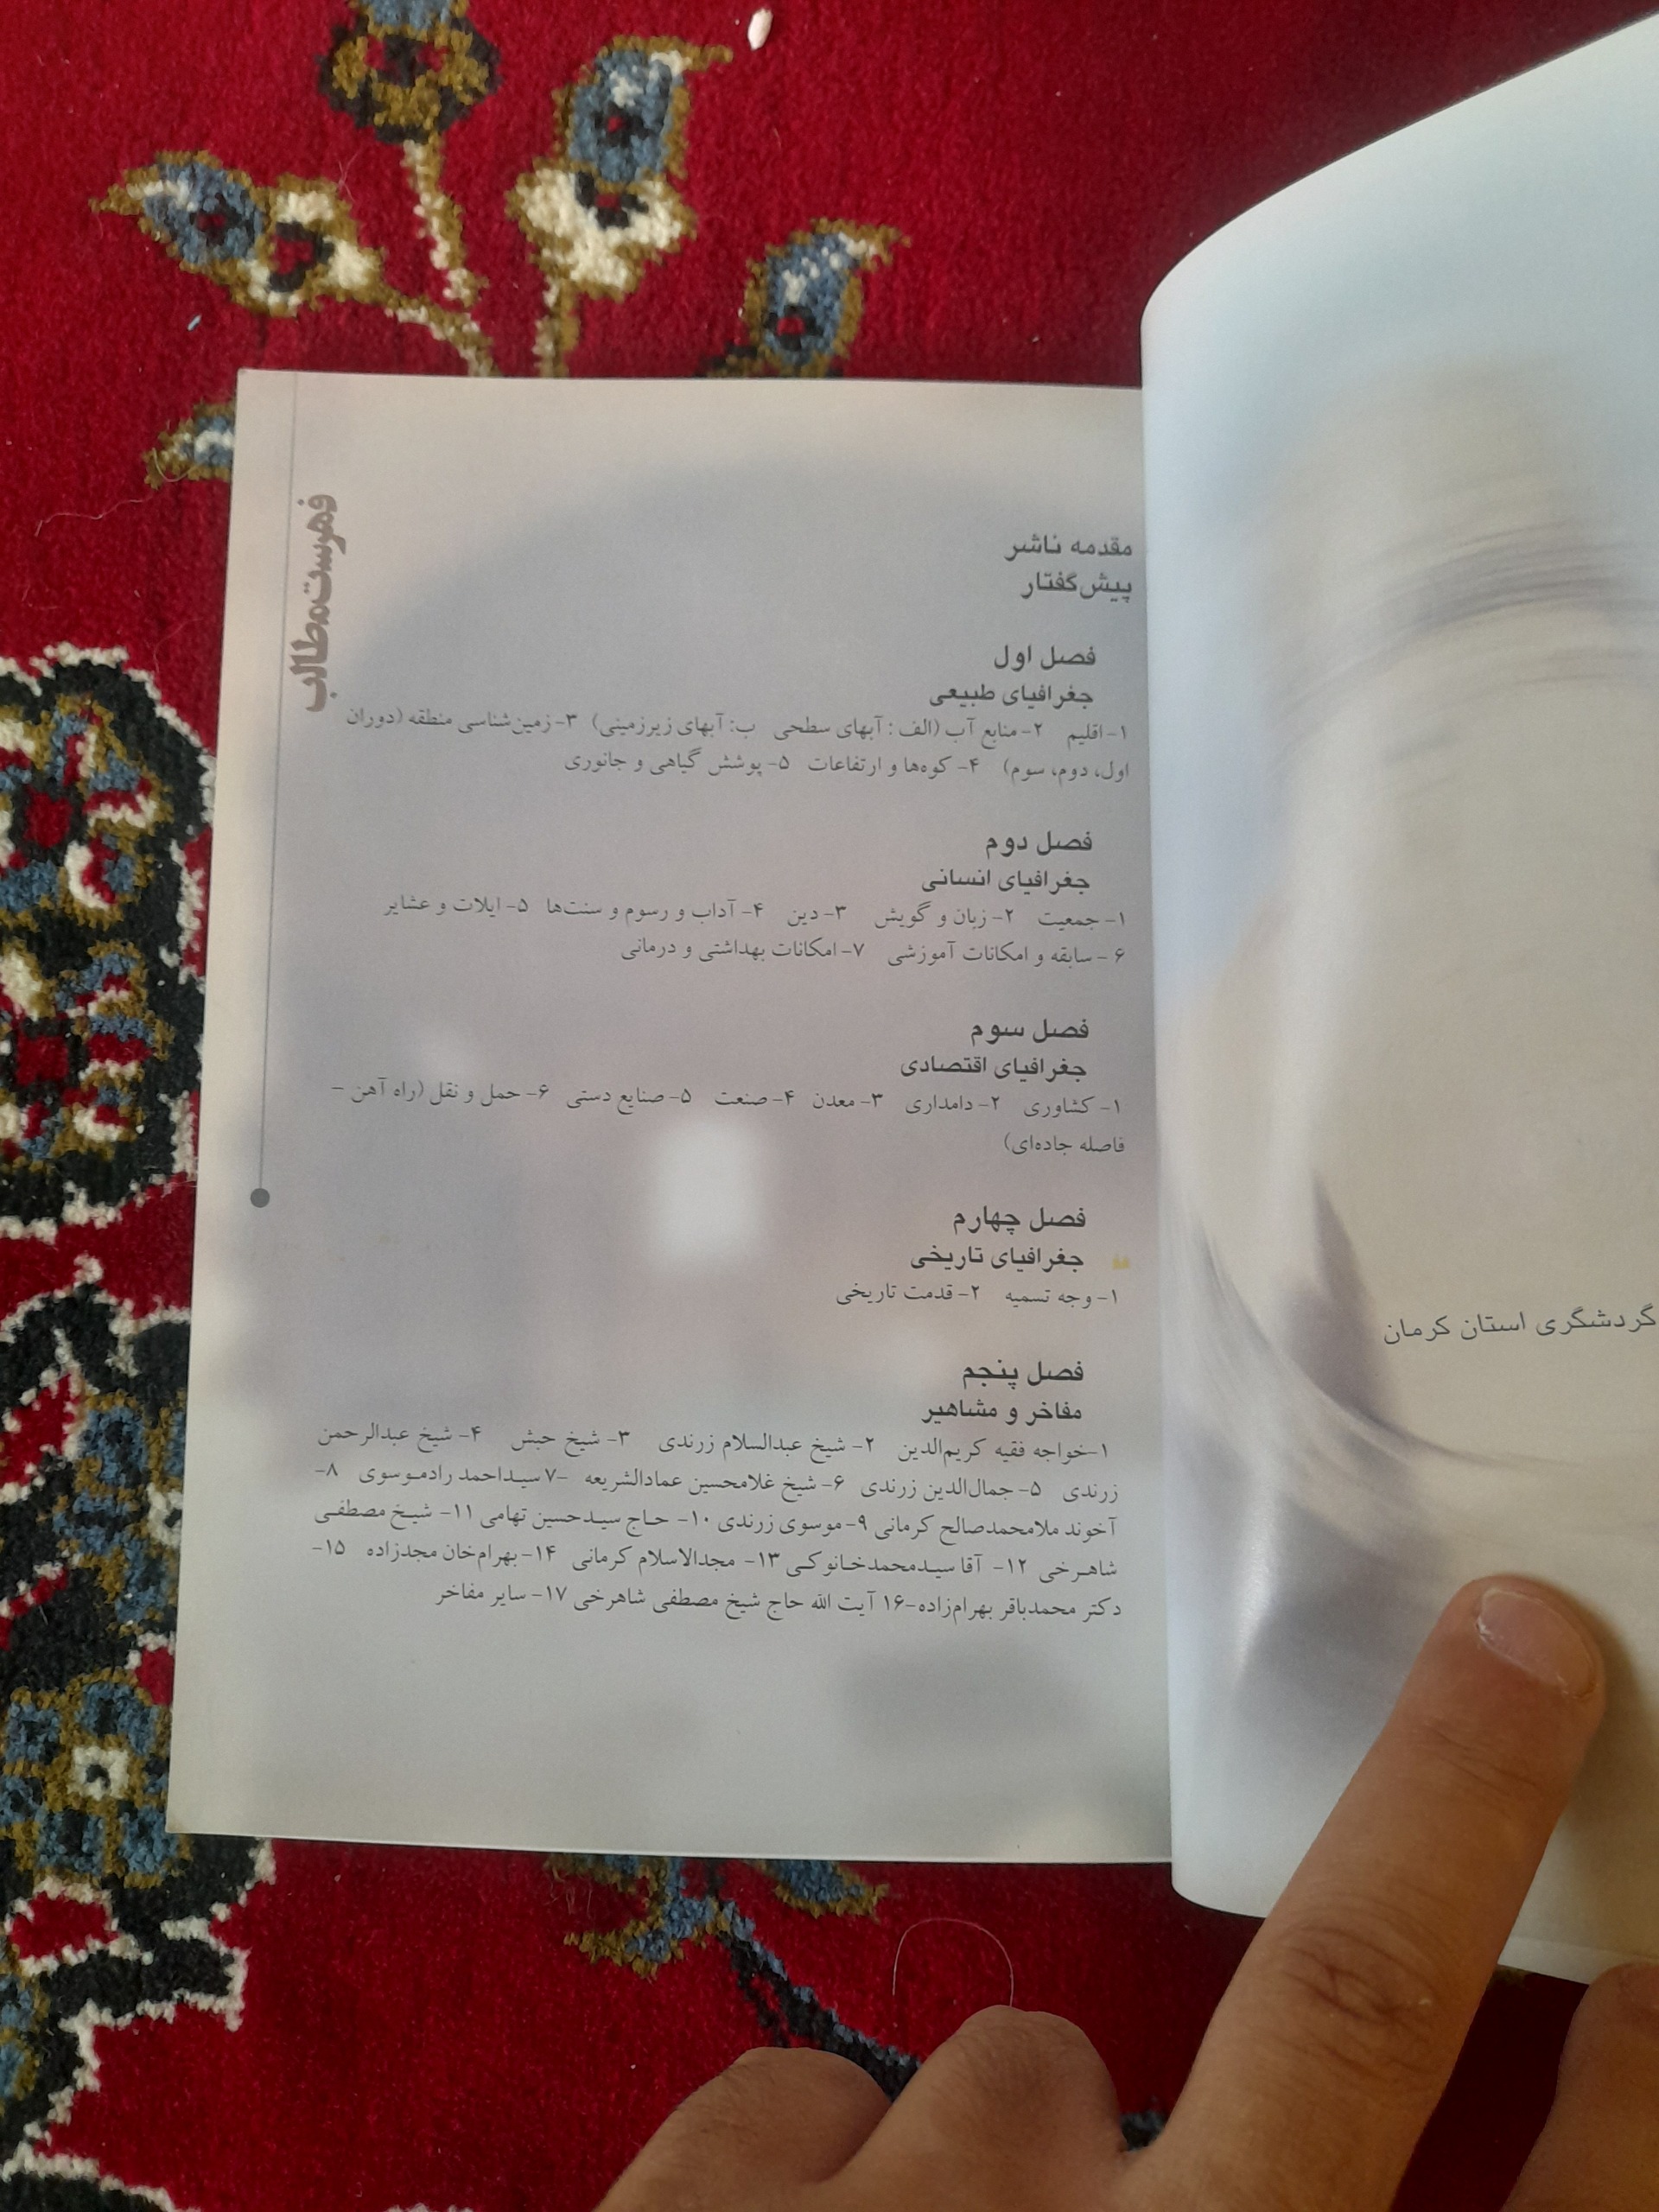 فهرست مطالب
مقدمه ناشر
پیش‌گفتار
فصل اول
جغرافیای طبیعی
۱- اقلیم ۲- منابع آب (الف : آبهای سطحی ب: آبهای زیرزمینی) ۳- زمین‌شناسی منطقه (دوران
اول، دوم، سوم) ۴- کوه‌ها و ارتفاعات ۵- پوشش گیاهی و جانوری
فصل دوم
جغرافیای انسانی
۱- جمعیت ۲- زبان و گویش ۳- دین ۴- آداب و رسوم و سنت‌ها ۵- ایلات و عشایر
۶ - سابقه و امکانات آموزشی ۷- امکانات بهداشتی و درمانی
فصل سوم
جغرافیای اقتصادی
۱- کشاوری ۲- دامداری ۳- معدن ۴- صنعت ۵- صنایع دستی ۶- حمل و نقل (راه آهن -
فاصله جاده‌ای)
فصل چهارم
جغرافیای تاریخی
۱- وجه تسمیه ۲- قدمت تاریخی
فصل پنجم
مفاخر و مشاهیر
۱-خواجه فقیه کریم‌الدین ۲- شیخ عبدالسلام زرندی ۳- شیخ حبش ۴- شیخ عبدالرحمن
زرندی ۵- جمال‌الدین زرندی ۶- شیخ غلامحسین عمادالشریعه -۷ سیداحمد رادموسوی ۸-
آخوند ملامحمدصالح کرمانی ۹- موسوی زرندی ۱۰- حاج سیدحسین تهامی ۱۱- شیخ مصطفی
شاهرخی ۱۲- آقا سیدمحمدخانوکی ۱۳- مجدالاسلام کرمانی ۱۴- بهرام‌خان مجدزاده ۱۵-
دکتر محمدباقر بهرام‌زاده-۱۶ آیت الله حاج شیخ مصطفی شاهرخی ۱۷- سایر مفاخر
گردشگری استان کرمان